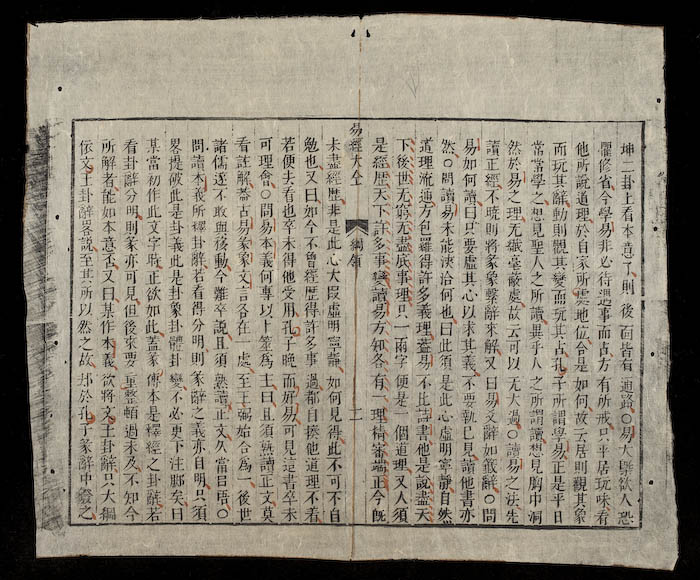 坤二卦上看本意了則後面皆有通路○易大槩欲人恐
懼修省今學易非必待遇事而占方有所戒只平居玩味看
他所說道理於自家所處地位合是如何故云居則觀其象
而玩其辭動則觀其變而玩其占孔子所謂學易正是平日
常常學之想見聖人之所讀異乎人之所謂讀想見胸中洞
然於易之理无纖毫蔽處故云可以无大過○讀易之法先
讀正經不曉則將彖象繫辭來解又曰易爻辭如籤辭○問
易如何讀曰只要虛其心以求其義不要執己見讀他書亦
然○問讀易未能浹洽何也曰此須是此心虛明寧靜自然
道理流通方包羅得許多義理蓋易不比詩書他是說盡天
下後世无窮无盡底事理只一兩字便是一個道理又人須
是經歷天下許多事變讀易方知各有一理精審端正今旣
易經大全 綱領 二
未盡經歷非是此心大段虛明寧靜如何見得此不可不自
勉也又曰如今不曾經歷得許多事過都自揍他道理不着
若便去看也卒未得他受用孔子晚而好易可見這書卒未
可理會○問易本義何專以卜筮爲主曰且須熟讀正文莫
看註解蓋古易彖象文言各在一處至王弼始合爲一後世
諸儒遂不敢與移動今難卒說且須熟讀正文久當自悟○
問讀本義所釋卦辭若看得分明則彖辭之義亦自明只須
畧提破此是卦義此是卦象卦體卦變不必更下注脚矣曰
某當初作此文字時正欲如此蓋彖傳本是釋經之卦辭若
看卦辭分明則彖亦可見但後來要重整頓過未及不知今
所解者能如本意否又曰某作本義欲將文王卦辭只大綱
依文王卦辭畧說至其所以然之故却於孔子彖辭中發之